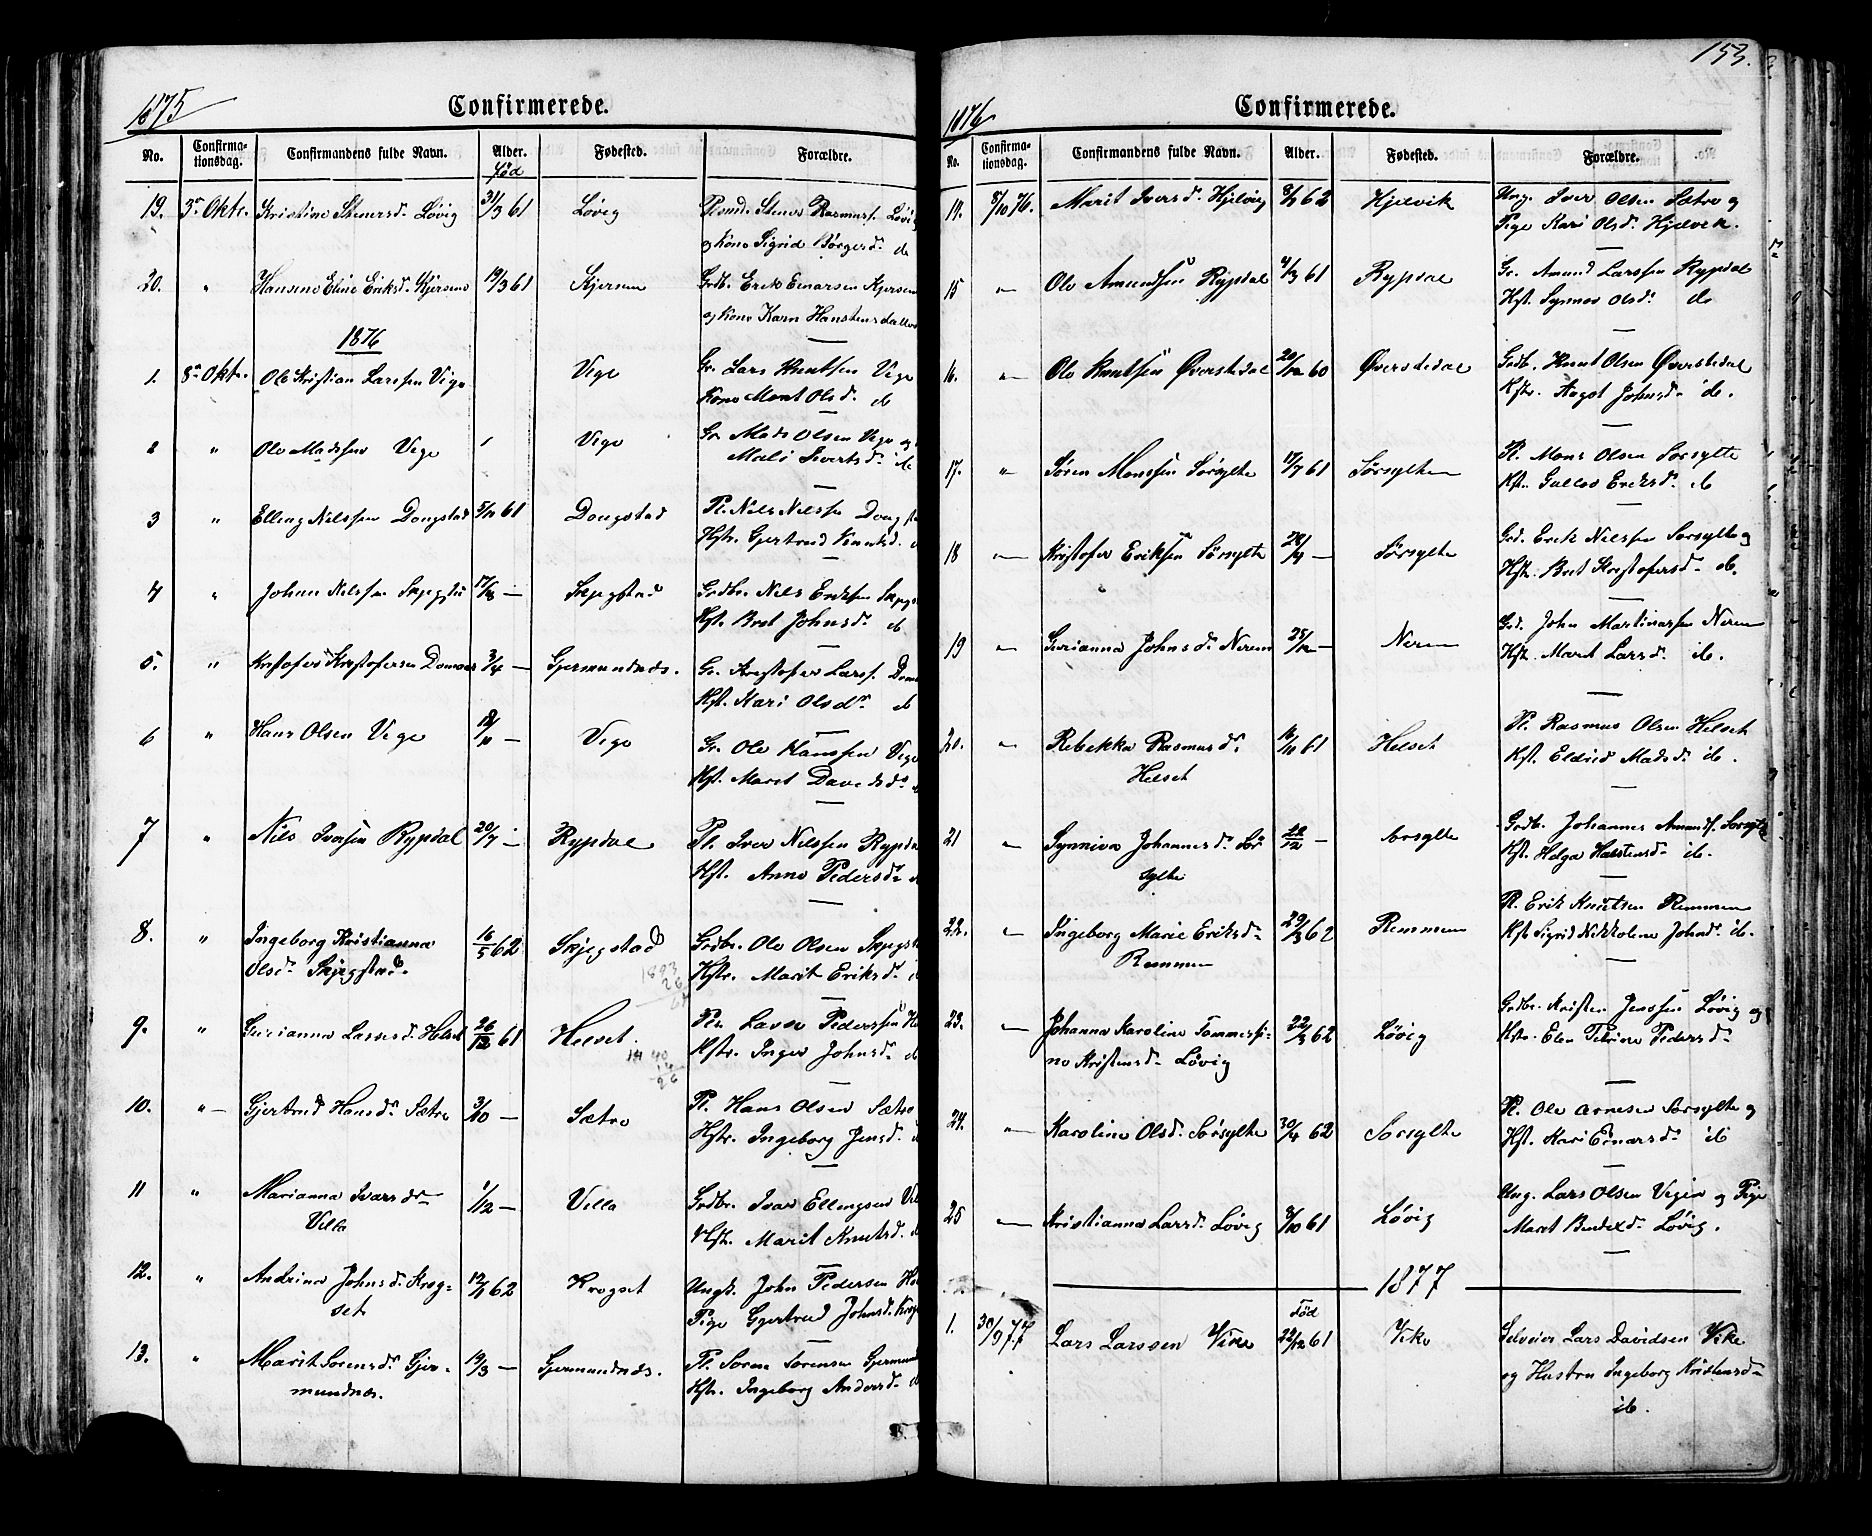 1875
Confirmerede.
No. Confirma-tionsdag. Confirmandens fulde Navn. Alder. Fødested. Forældre.
Fød
19. 3' Oktr. Kristine Stenersd. Løvig 31/3 61 Løvig Stener Rasmuss. Løvig
og Kone Sigrid Børgesd. ib
20. " Hansine Eline Eriksd. Kjersem 19/3 61 Kjersem Grdb. Erik Einarsen Kjersem
og Kone Karn
1876
1. 8' Oktr. Ole Kristian Larssen Vige Vige Gr. Lars Knutsen Vige
Kone Marit Olsd. ib
2 " Ole Madssen Vige Vige Gr. Mads Olsen Vige og
Mali Ivertsd. ib
3 " Elling Nilssen Dongstad 5/10 61 Dongstad Pl. Nils Nilssen
Hstr. Gjertrud Knutsd.
4 " Johan Nilssen 17/8 — Skjegstad Grdbr. Nils Eriksen
Hst. Brit Johnsd. ib
5. " Kristofer Kristofersen 3/4 — Gjermundnæs. Gr. Kristofer Larss.
Kst. Kari Olsdr ib
6 " Hans Olsen Vige Vige Gr. Ole Hanssen Vige
Kst. Marit Davidsdr
7 " Nils Iversen Rypdal 20/7 — Rypdal Pl. Iver Nilssen
Hst. Anne Pedersd.
8. " Ingeborg Kristianna 16/5 62 Skjegstad Grdbr. Ole Olsen
Olsd. Skjegstad. Hstr. Marit Eriksdr
1893
26
9. " Gurianna Larsesd. Helset 26/12 61 Helset. Lasse Pederssen
Kstr. Inger Johnsd. ib
40
14
26
10. " — Gjertrud Hansdr Sætre 3/10 — Sætre Pl. Hans Olsen Sætre
Hstr. Ingeborg Jensd.
11 " Marianna Ivarsdr 1/12 — Villa Grdbr. Ivar Ellingsen
Villa Hstr. Marit Knutsd.
12. " Andrina Johnsd. Krog- 12/1 62 Krogset Ungk. John Pedersen
set Pige Gjertrud Johnsd.
13. " Marit Sorensd. Gjer- 19/3 — Gjermundnæs. Pl. Soren Sorensen
mundnæs. Hstr. Ingeborg Andersd.
153.
1876
Confirmerede.
No. Confirma-tionsdag. Confirmandens fulde Navn. Alder. Fødested. Forældre.
14. 8/10 76. Marit Iversd. Hjelvig 8/1 62 Hjelvik Ung. Iver Olsen Sætre og
Pige Kari Olsd. Hjelvik.
15 " Ole Amundsen Rypdal 4/3 61 Rypdal Gr. Amund Larssen Rypdal
Hst. Synnøv Olsd. ib
16. " Ole Knutsen Øverstedal 20/12 60 Øverstedal Grdb. Knut Olsen Øverstedal
Kstr. Aagot Johnsd. ib.
17. " Søren Monssen Sørsylte 17/7 61 Sørsylten Pl. Mons Olsen Sorsylte
Kst. Gullov Eriksd. ib
18 " Kristofer Eriksen Sørsylte 28/9 — Sørsylte Grd. Erik Nilssen Sorsylte og
Hst. Brit Kristofersd. ib.
19 " Gurianna Johnsd. Nerem 25/12 — Nerem Grd. John Martinussen Nerem
Hst. Marit Larsd. ib.
20. " Rebekka Rasmusdr 16/11 61 Helset Pl. Rasmus Olsen Helset
Helset Kst. Eldrid Madsd. ib.
21 " Synniva Johannesd. Sør 22/12 — Sorsylte Grdb. Johannes Amunds. Sorsylte
sylte Kst. Helga Halstensd. ib.
22. " Ingeborg Marie Eriksd. 29/3 62 Remmem Pl. Erik Knutsen Remmem
Remmem Kst. Sigrid Nikkoline Johnd. ib.
23. " Johanna Karoline Tommesi- 22/3 62 Løvig Grdbr. Kristen Jenssen Løvig og
ne Kristensd. Løvig Hstr. Elen Petrine Pedersd.
24. " Karoline Olsd. Sørsylte 30/4 62 Sorsylte Pl. Ole Arnesen Sorsylte og
Hst. Kari Einarsd. ib
25 " Kristianna Larsd. Løvig 8/10 61 Løvig Ung. Lars Olsen Vigen og Pige
Marit Bendixd. Løvig.
1877
Fød
1. 30/9 77 Lars Larssen Vike 22/12 61 Vike Selveier Lars Davidsen Vike
og Hustru Ingeborg Kristensd.
ib.